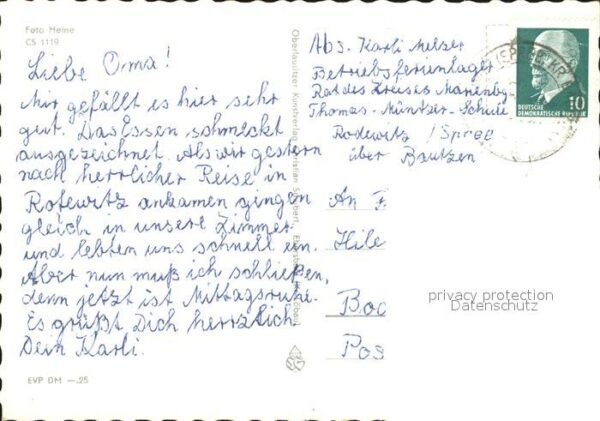 Foto Heine
CS 1119
Liebe Oma!
Mir gefällt es hier sehr
gut. Das Essen schmeckt
ausgezeichnet. Als wir gestern
nach herrlicher Reise in
Rotewitz ankamen gingen
gleich in unsere Zimmer
und lebten uns schnell ein.
Aber nun muß ich schließen,
denn jetzt ist Mittagsruhe.
Es grüßt Dich herzlich
Dein Karli.
EVP DM —.25
Oberlausitzer Kunstverlag Christian Schubert
Abs. Karli Melzer
Betriebsferienlager
Rat des Kreises Marienbg
Thomas-Müntzer-Schule
Rodewitz / Spree
über Bautzen
10
DEUTSCHE
DEMOKRATISCHE REPUBLIK
An F
Hile
Boc
Pos
privacy protection
Datenschutz